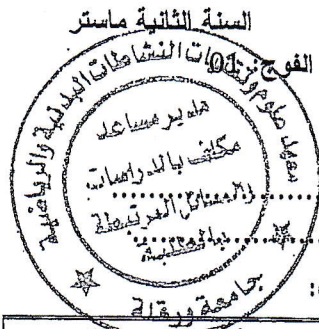 السنة الثانية ماستر
الفوج: 01
معهد علوم وتقنيات النشاطات البدنية والرياضية
مدير مساعد
مكلف بالدراسات
والمسائل المرتبطة
بالطلبة
بجامعة ورقلة